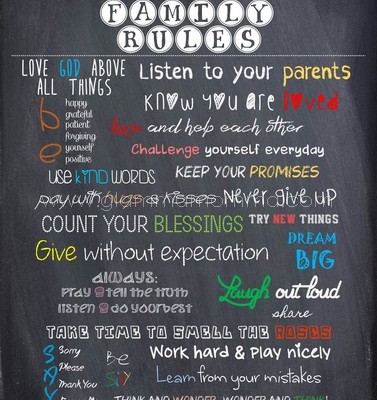 FAMILY
RULES
LOVE GOD ABOVE
ALL THINGS
Listen to your parents
be
happy
grateful
patient
forgiving
yourself
positive
know you are loved
love and help each other
Challenge yourself everyday
use kind WORDS
KEEP YOUR PROMISES
pay with hugs & kisses
Never give up
COUNT YOUR BLESSINGS
TRY NEW THINGS
Give without expectation
DREAM
BIG
ALWAYS:
PRAY & tell the truth
listen & do your best
Laugh out loud
share
TAKE TIME TO SMELL THE ROSES
SAY
Sorry
Please
Thank You
Be
Sly
Work hard & Play nicely
Learn from your mistakes
THINK AND WONDER, WONDER AND THINK!